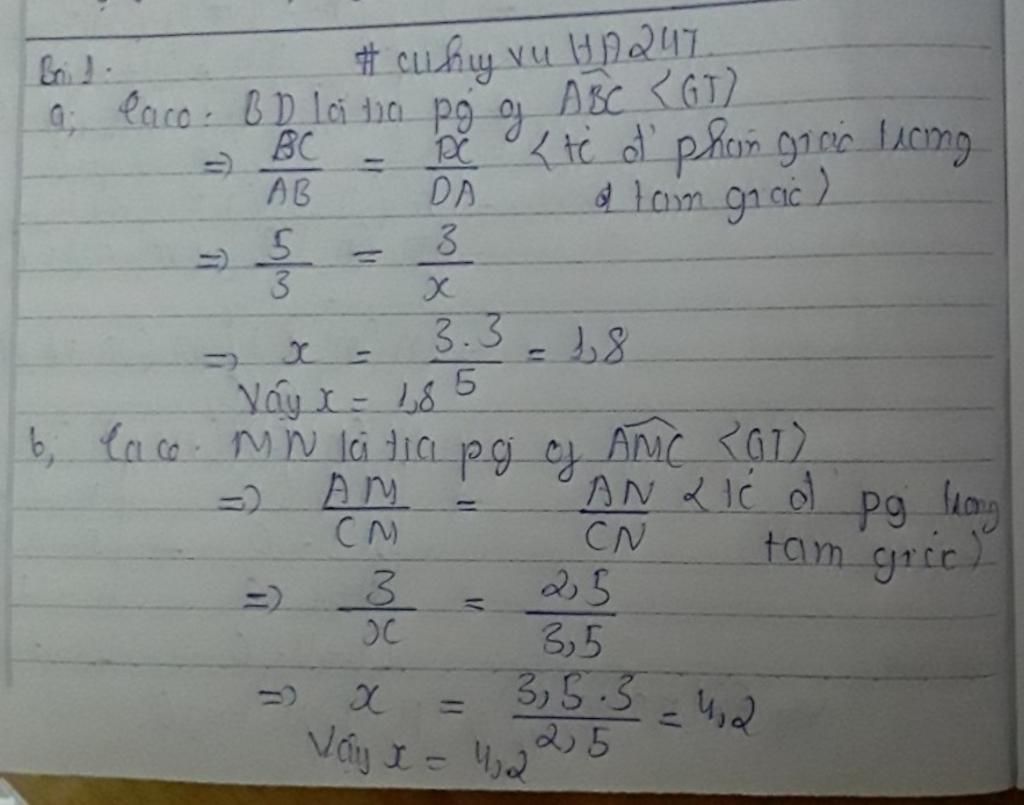 Bài 1.
# cuhuy vu HA247
a; Ta có: BD là tia pg of ABC <GT>
=> BC/AB = DC/DA <tc đ' phân giác trong
of tam giác>
=> 5/3 = 3/x
=> x = 3.3/5 = 1,8
Vậy x = 1,8
b, Ta có: MN là tia pg of AMC <GT>
=> AM/CM = AN/CN <tc đ pg trong
tam giác>
=> 3/x = 2,5/3,5
=> x = 3,5.3/2,5 = 4,2
Vậy x = 4,2